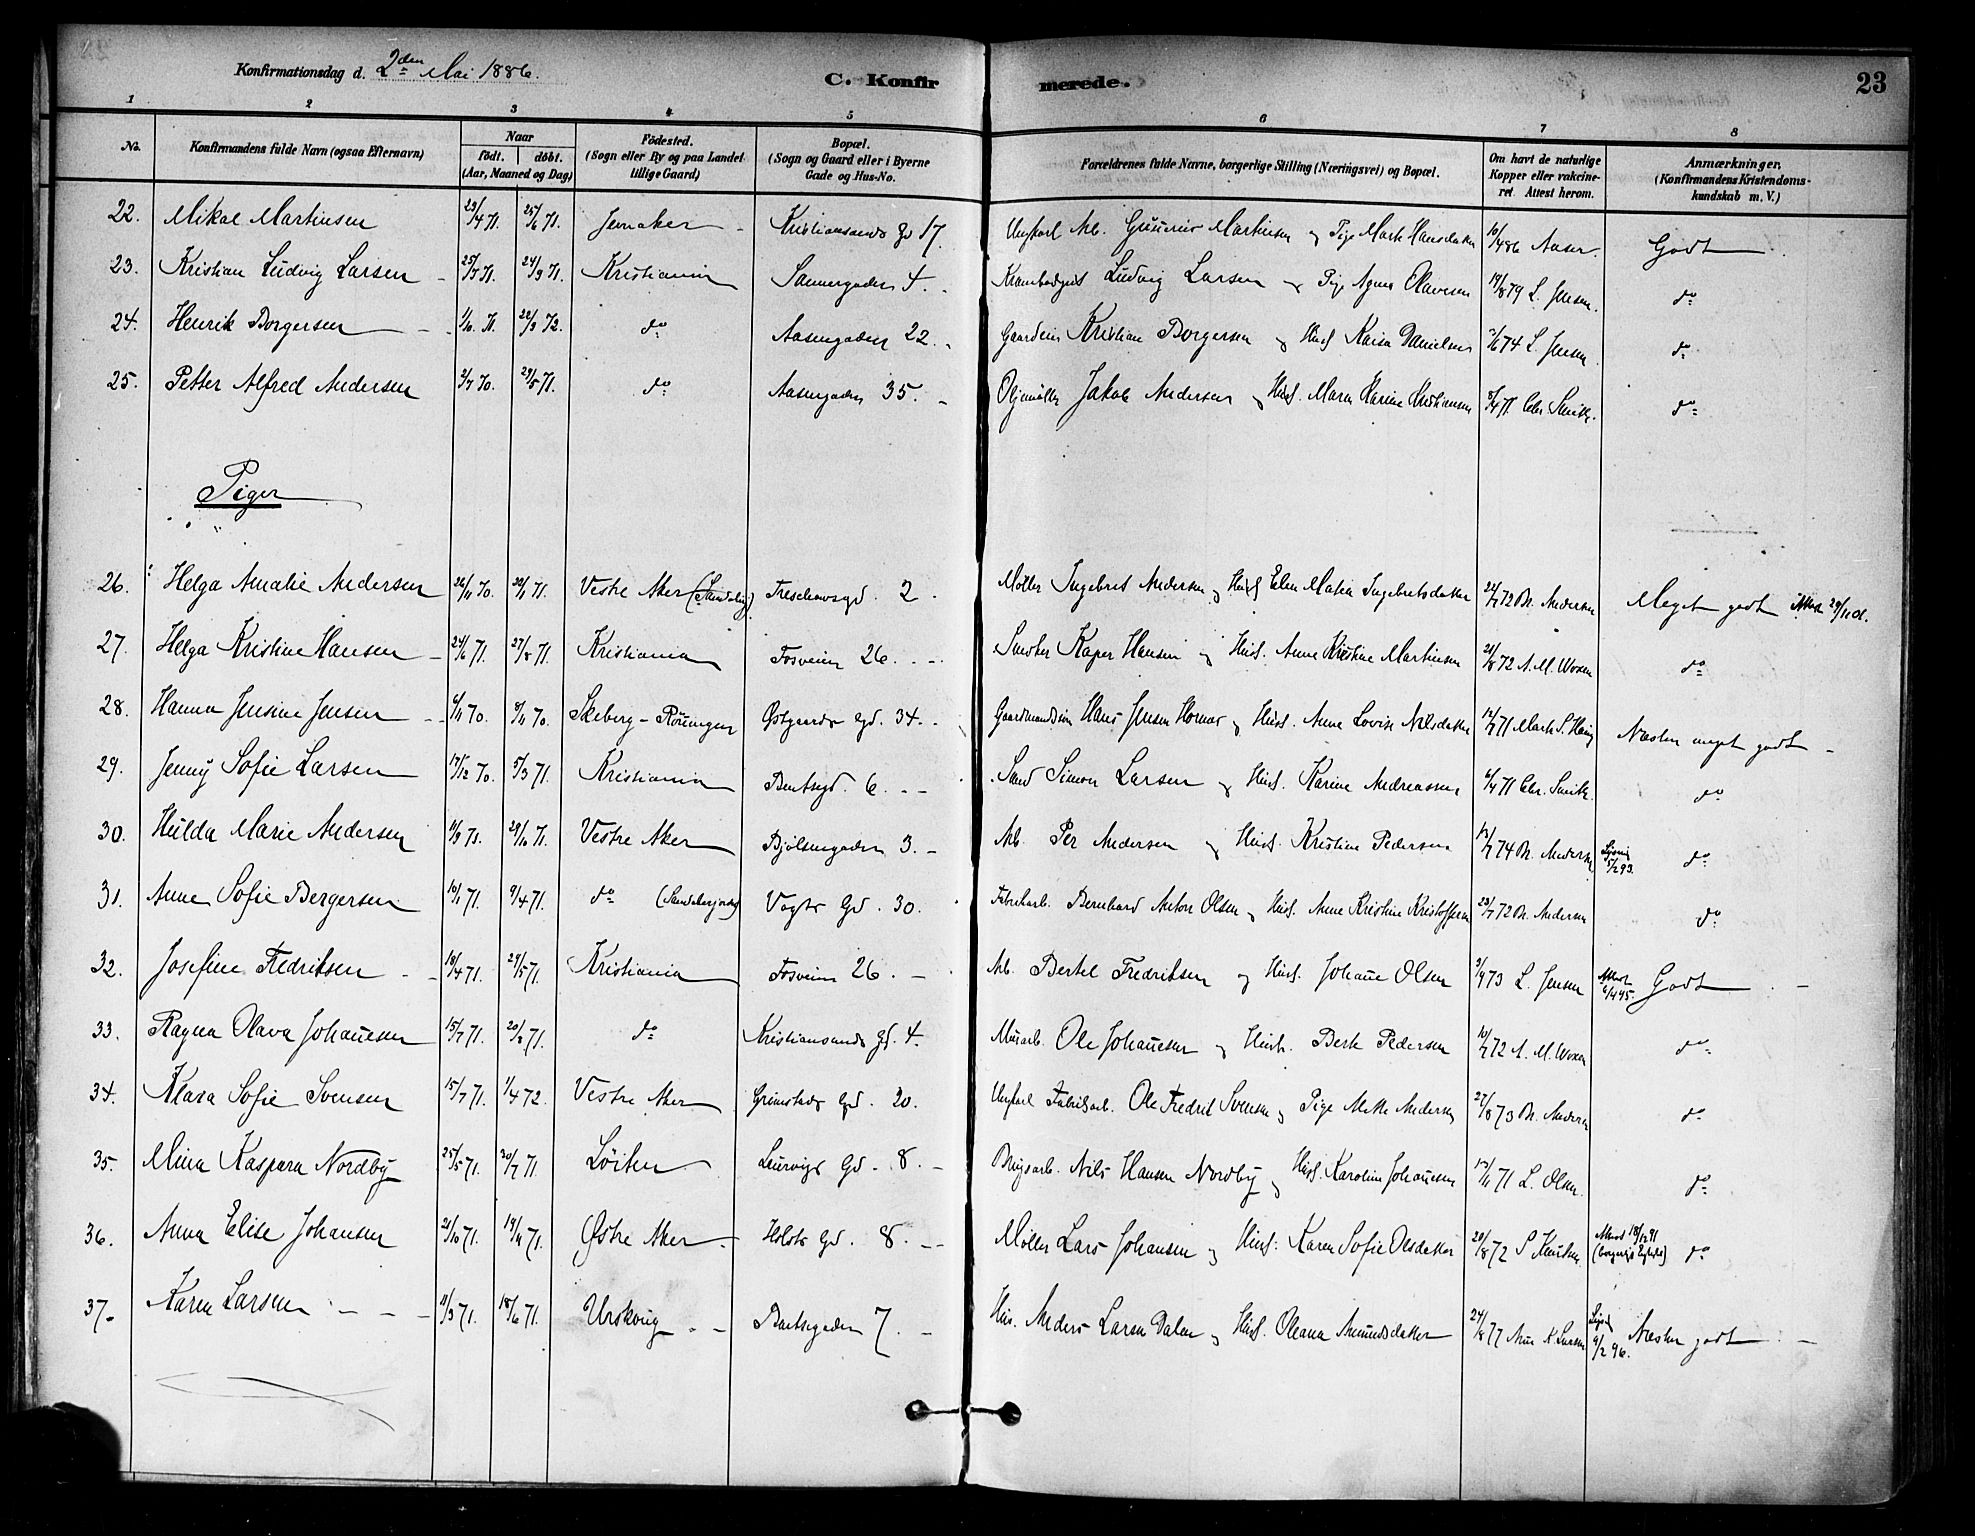 Konfirmationsdag d. 2den Mai 1886. C. Konfirmerede. 23
1 2 3 4 5 6 7 8
No. Konfirmandens fulde Navn (ogsaa Efternavn) Naar født. døbt. (Aar, Maaned og Dag) Fødested. (Sogn eller By og paa Landet tillige Gaard) Bopæl. (Sogn og Gaard eller i Byerne Gade og Hus-No. Forældrenes fulde Navne, borgerlige Stilling (Næringsvei) og Bopæl. Om havt de naturlige Kopper eller vakcineret. Attest herom. Anmærkninger. (Konfirmandens Kristendomskundskab m. V.)
22. Mikal Martinsen 23/4 71. 25/6 71. Jevnaker Kristiansands Gd 17. Ungkarl Arb. Gunerius Martinsen og Pige Marthe Hansdatter 10/4 86 Aaser. Godt
23. Kristian Ludvig Larsen 25/7 71. 24/9 71. Kristiania Sannergaden 4. Ludvig Larsen og Pige Agnes Olavesen 19/8 79 L. Jensen. do
24. Henrik Borgersen 1/10 71. 22/9 72. do Aasengaden 22. Kristian Borgersen og Hust Kaisa Danielsen 2/6 74 L. Jensen. do
25. Petter Alfred Andersen 2/7 70. 29/5 71. do Aasengaden 35. Oljemøller Jakob Andersen og Hust. Maren Karine Kristiansen 5/4 71 Chr. Smith. do
Piger
26. Helga Amalie Andersen 26/11 70. 22/1 71. Vestre Aker Treschowsgd. 2. Møller Ingebret Andersen og Hust Elen Matea Ingebretsdatter 24/7 72 Br. Andersen Meget godt Attest 29/11 01.
27. Helga Kristine Hansen 24/6 71. 27/8 71. Kristiania Fosveien 26. Snedker Kasper Hansen og Hust. Anne Kristine Martinsen 21/8 72 A. M. Woxen do
28. Hanna Jensine Jensen 6/11 70. 8/11 70. Skeberg - Østgaards Gd. 34. Hans Jensen og Hust. Anne Lovise Nilsdatter 12/7 71 Næsten meget godt
29. Jenny Sofie Larsen 17/12 70. 5/3 71. Kristiania Bentsegd. 6. Simon Larsen og Hust. Karine Andreassen 6/4 71 Chr. Smith. do
30. Hulda Marie Andersen 4/9 71. 29/10 71. Vestre Aker Bjølsengaden 3. Arb. Per Andersen og Hust. Kristine Pedersen 13/7 74 Br. Andersen Lysning 5/2 93. do
31. Anne Sofie Bergersen 10/1 71. 9/4 71. do Vogts Gd. 30. Fabrikarb. Bernhard Anton Olsen og Hust. Anne Kristine Kristoffersen 23/7 72 Br. Andersen do
32. Josefine Fredriksen 18/4 71. 29/5 71. Kristiania Fosveien 26. Arb. Bertel Fredriksen og Hust. Johanne Olsen 3/9 73 L. Jensen Godt
33. Ragna Olava Johannesen 15/7 71. 20/8 71. do Kristiansands Gd. 4. Murarb. Ole Johannesen og Hust. Berte Pedersen 10/7 72 A. M. Woxen do
34. Klara Sofie Svensen 15/7 71. 1/4 72. Vestre Aker Grimstads Gd. 20. Ungkarl Fabrikarb. Ole Fredrik Svensen og Pige Mette Andersen 27/8 73 Br. Andersen do
35. Mina Kaspara Nordby 25/5 71. 30/7 71 Løiten Leirvigs Gd. 8. Brugsarb. Nils Hansen Nordby og Hust. Karoline Johannesen 17/11 71 L. Olsen. do
36. Anna Elise Johansen 21/10 71. 19/11 71. Østre Aker Holsts Gd. 8. Møller Lars Johansen og Hust. Karen Sofie Olsdatter 20/8 72 S Knutsen Attest 18/12 91 do
37. Karen Larsen 11/3 71. 18/6 71. Urskoug Bentsegaden 7. Hus. Anders Larsen Dalen og Hust. Oleana Amundsdatter 24/8 77 K. Larsen Lysn. 9/2 96. Næsten godt